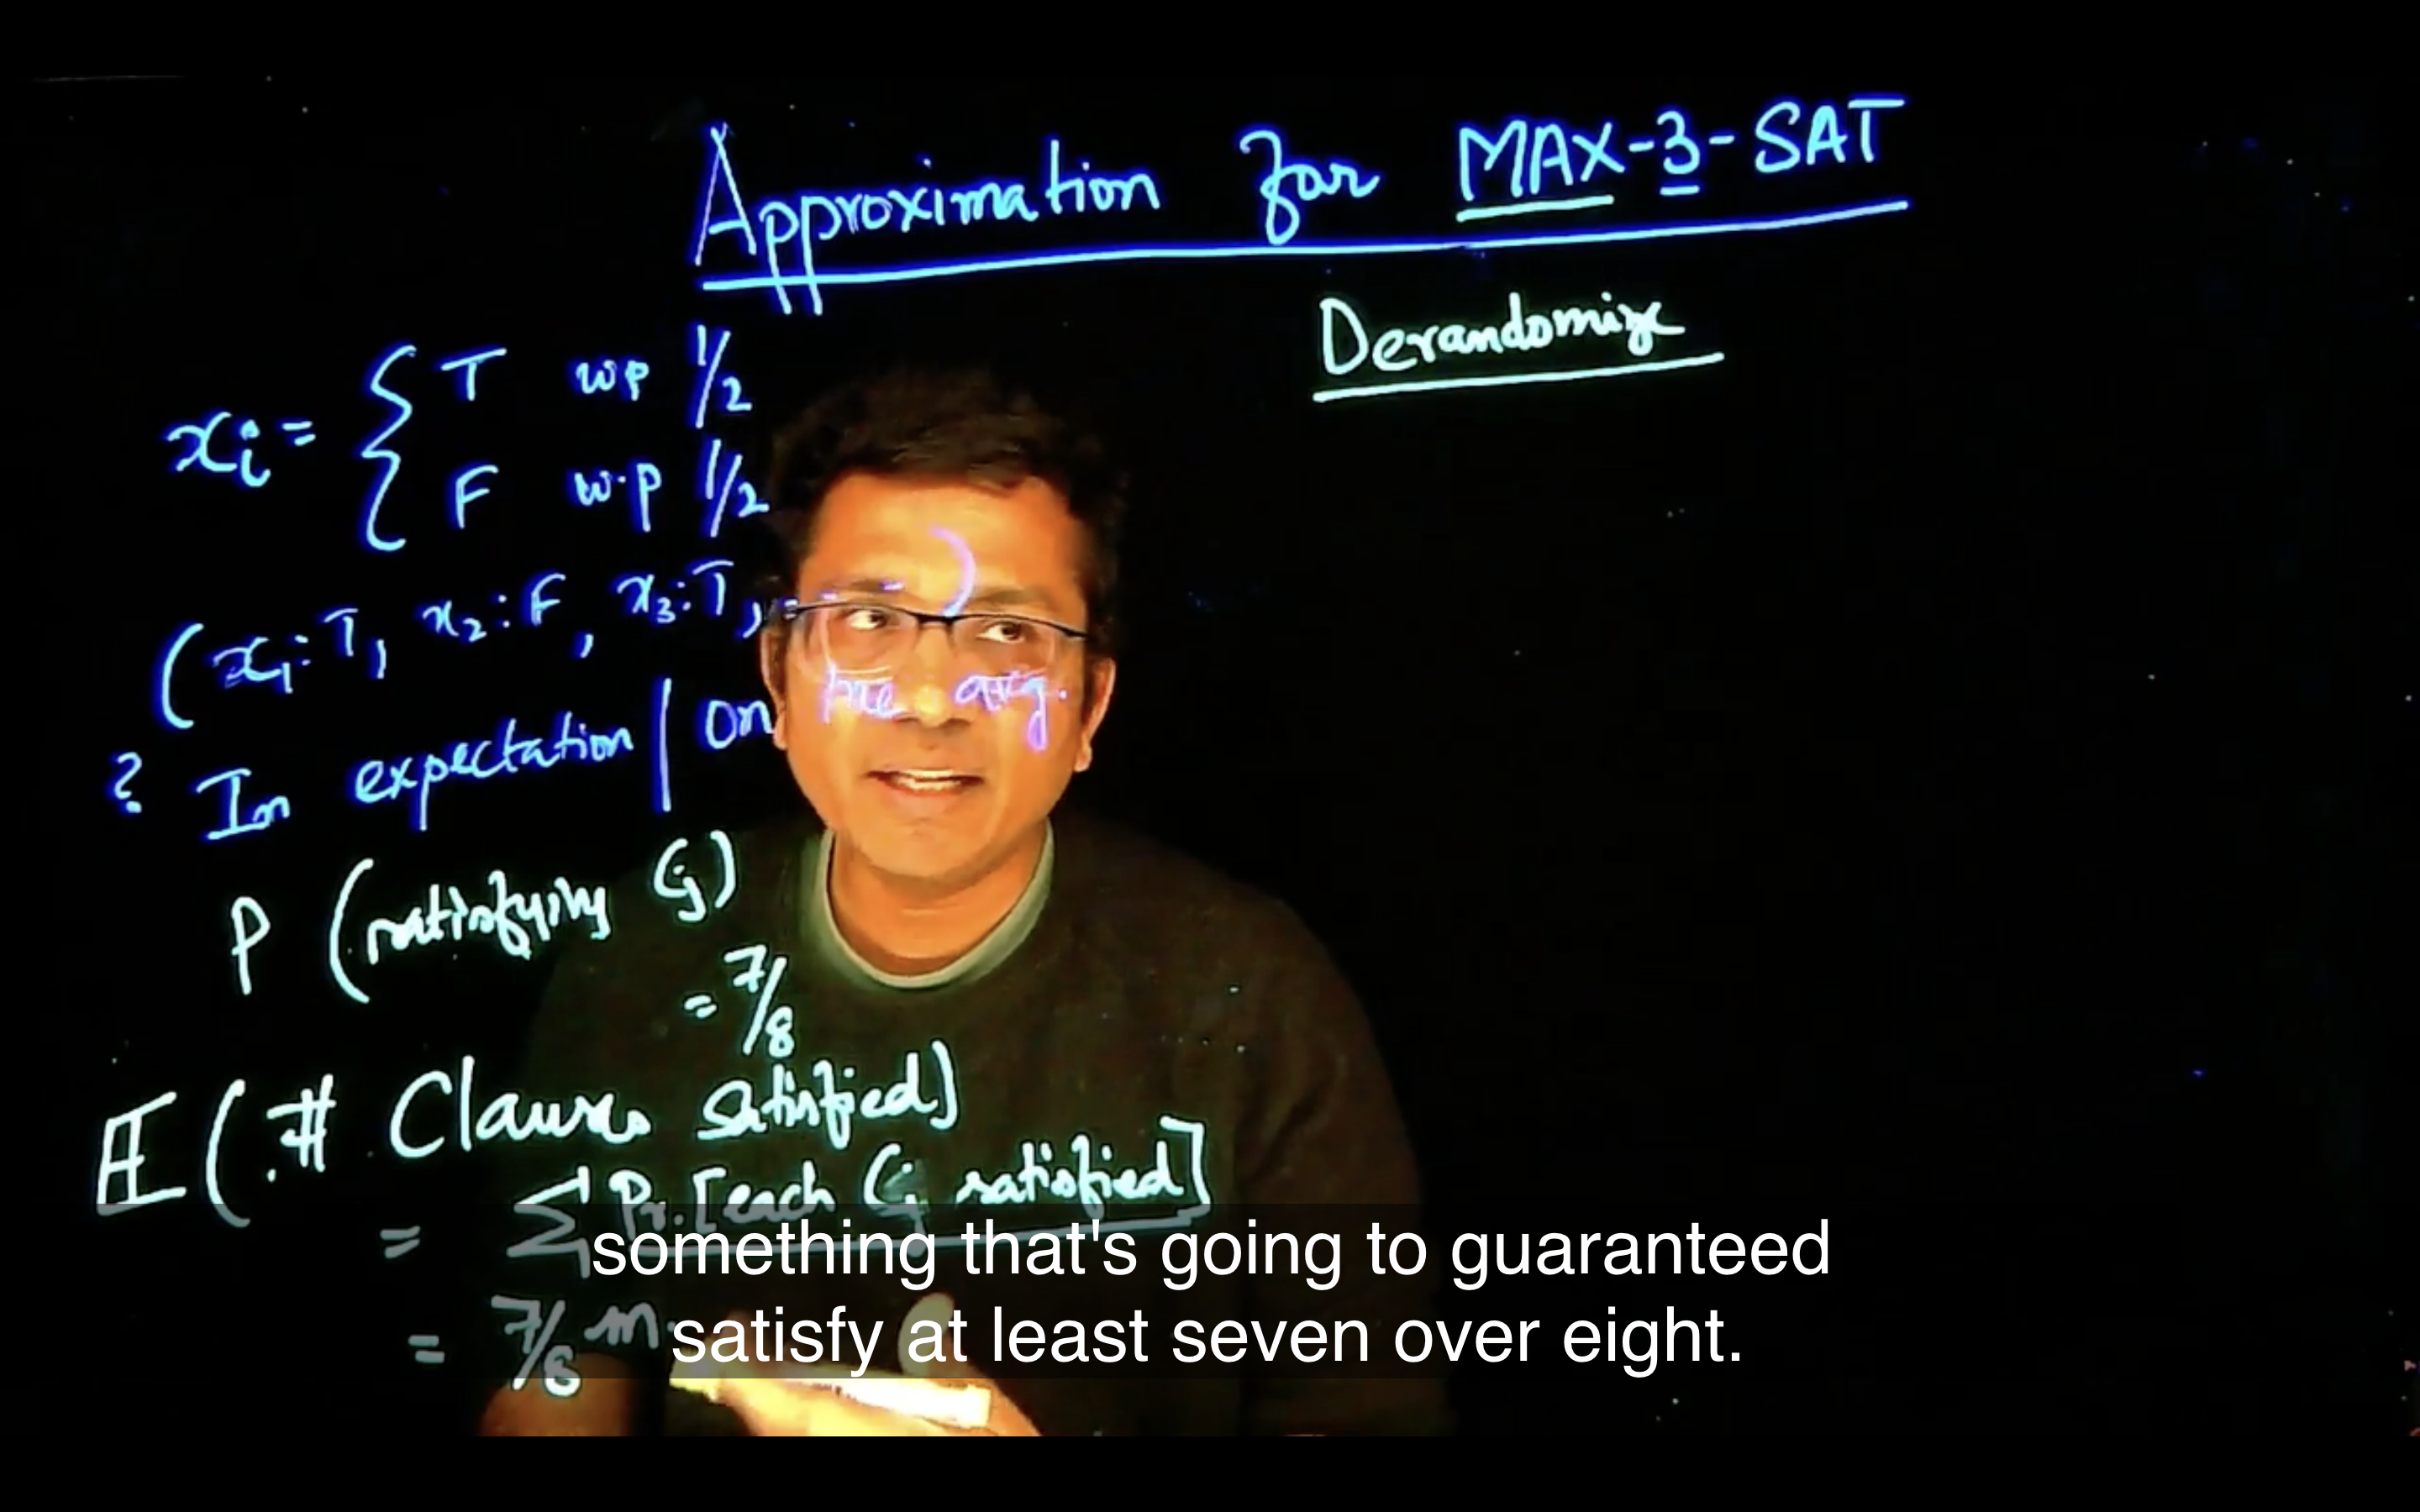 Approximation for MAX-3-SAT
Derandomize
xi = { T wp 1/2
F w.p 1/2
(x1:T, x2:F, x3:T, )
? In expectation | On the avg.
P (satisfying Cj)
= 7/8
E(# Clauses satisfied)
= Σ Pr.[each Cj satisfied]
= 7/8 m.
something that's going to guaranteed
satisfy at least seven over eight.